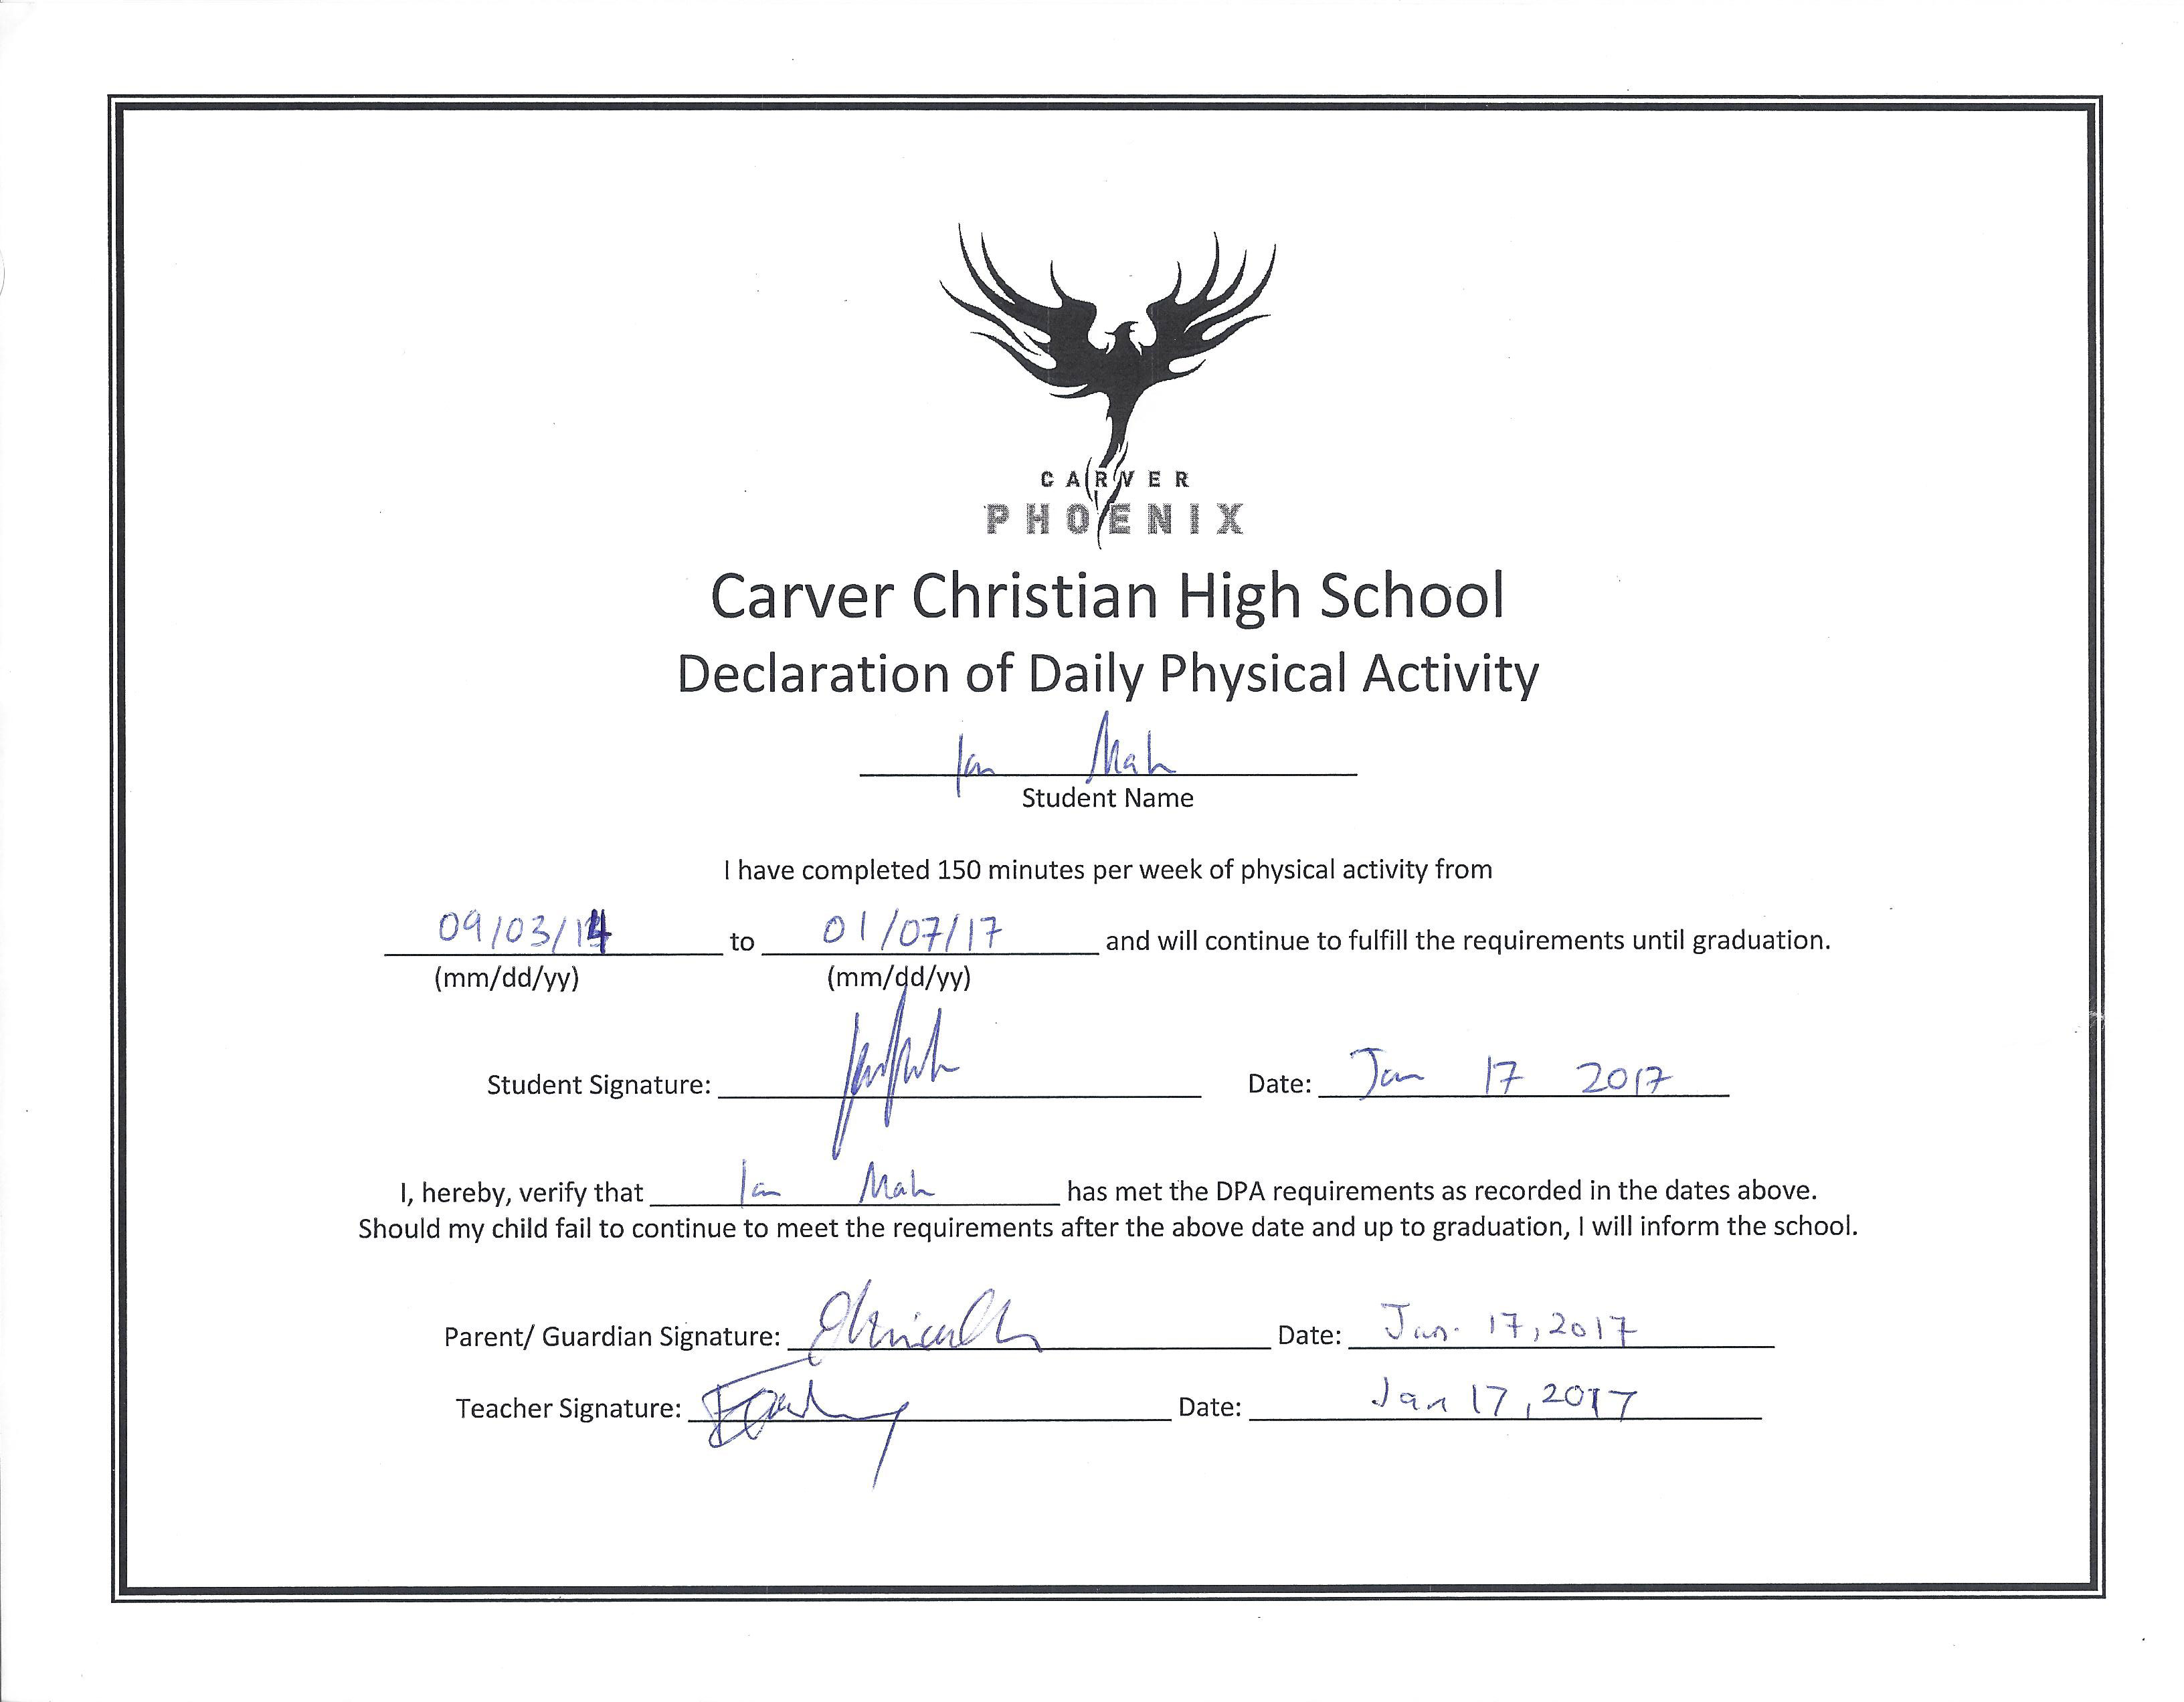 CARVER
PHOENIX
Carver Christian High School
Declaration of Daily Physical Activity
Ian Mah
Student Name
I have completed 150 minutes per week of physical activity from
09/03/14 to 01/07/17 and will continue to fulfill the requirements until graduation.
(mm/dd/yy) (mm/dd/yy)
Student Signature: Date: Jan 17 2017
I, hereby, verify that Ian Mah has met the DPA requirements as recorded in the dates above.
Should my child fail to continue to meet the requirements after the above date and up to graduation, I will inform the school.
Parent/ Guardian Signature: Date: Jan. 17, 2017
Teacher Signature: Date: Jan 17, 2017